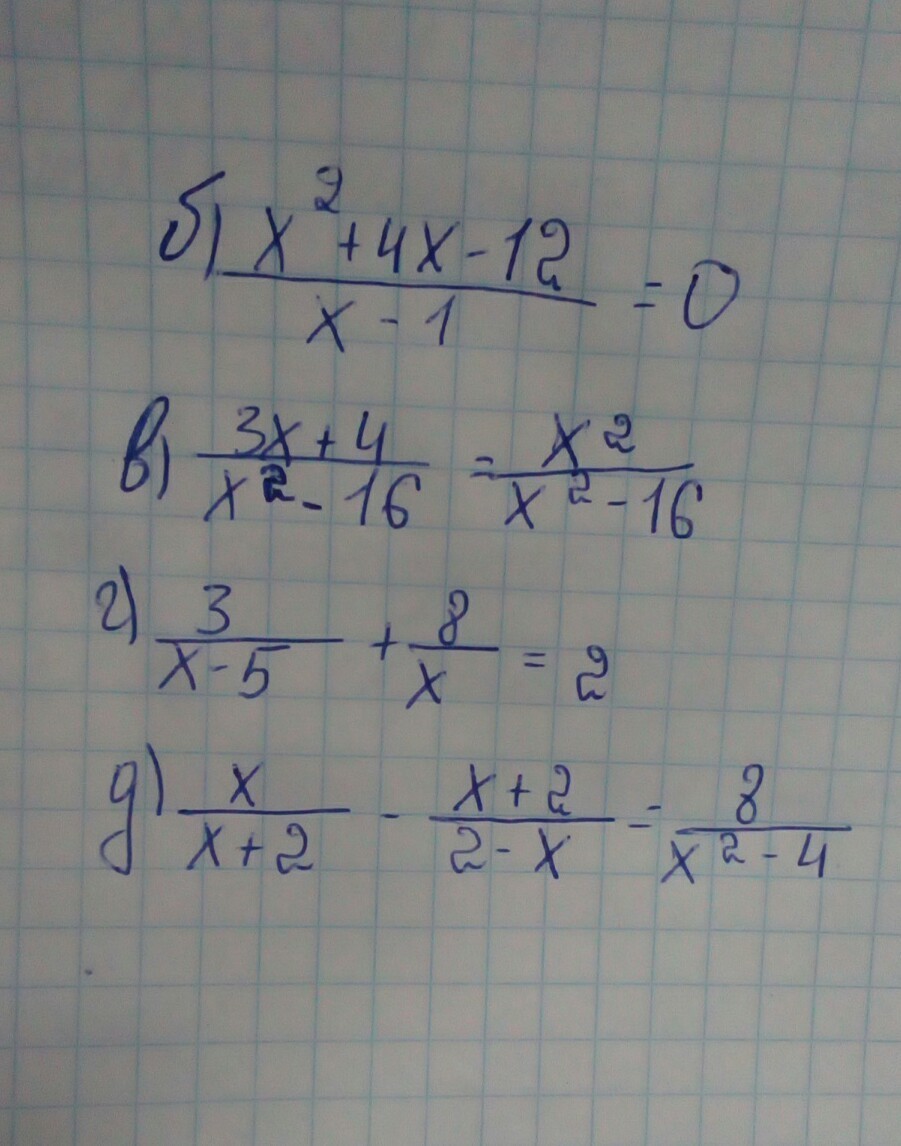 б) (x²+4x-12)/(x-1) = 0
в) (3x+4)/(x²-16) = x²/(x²-16)
г) 3/(x-5) + 8/x = 2
д) x/(x+2) - (x+2)/(2-x) = 8/(x²-4)